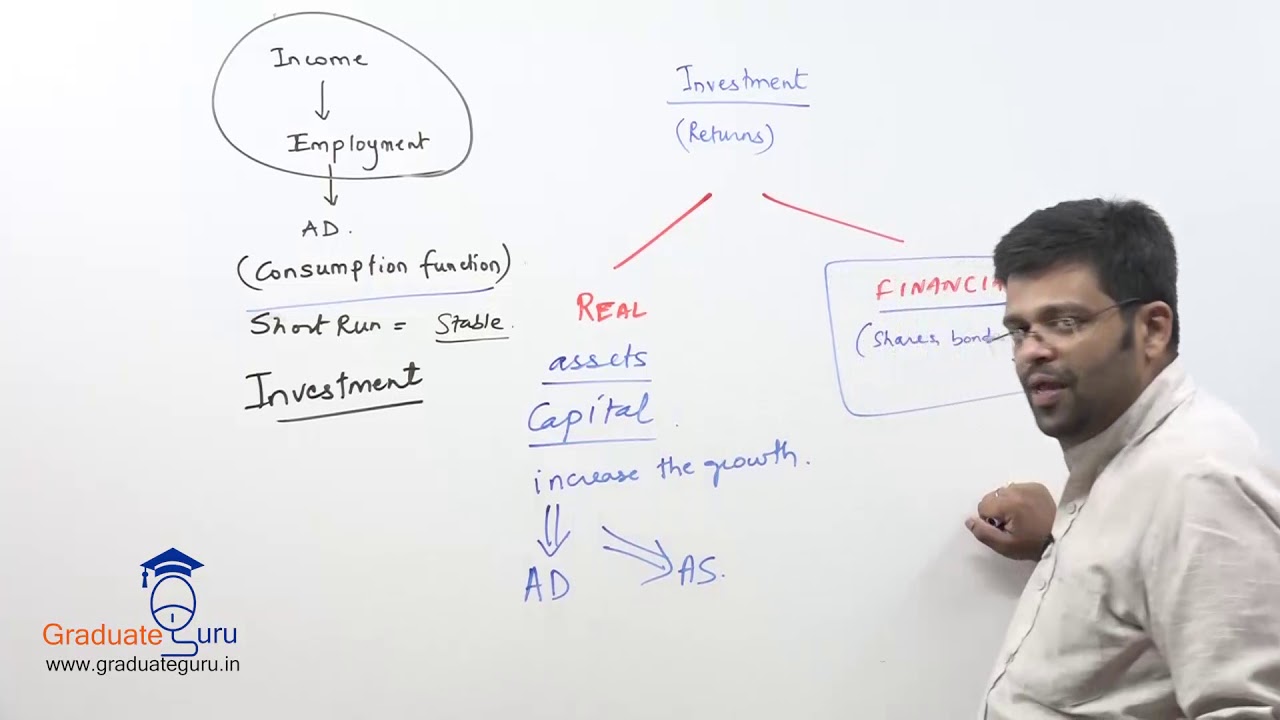 Income
↓
Employment
↓
AD.
(Consumption function)
Short Run = Stable.
Investment
Investment
(Returns)
REAL
assets
Capital.
increase the growth.
AD
AS.
(Shares,
Graduate Guru
www.graduateguru.in